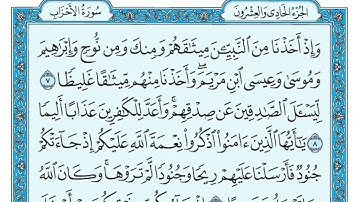 الجزء الحادي والعشرون
سورة الأحزاب
وَإِذْ أَخَذْنَا مِنَ ٱلنَّبِيِّـۧنَ مِيثَـٰقَهُمْ وَمِنكَ وَمِن نُّوحٍ وَإِبْرَٰهِيمَ
وَمُوسَىٰ وَعِيسَى ٱبْنِ مَرْيَمَ ۖ وَأَخَذْنَا مِنْهُم مِّيثَـٰقًا غَلِيظًا ٧
لِّيَسْـَٔلَ ٱلصَّـٰدِقِينَ عَن صِدْقِهِمْ ۚ وَأَعَدَّ لِلْكَـٰفِرِينَ عَذَابًا أَلِيمًا
٨ يَـٰٓأَيُّهَا ٱلَّذِينَ ءَامَنُوا۟ ٱذْكُرُوا۟ نِعْمَةَ ٱللَّهِ عَلَيْكُمْ إِذْ جَآءَتْكُمْ
جُنُودٌ فَأَرْسَلْنَا عَلَيْهِمْ رِيحًا وَجُنُودًا لَّمْ تَرَوْهَا ۚ وَكَانَ ٱللَّهُ